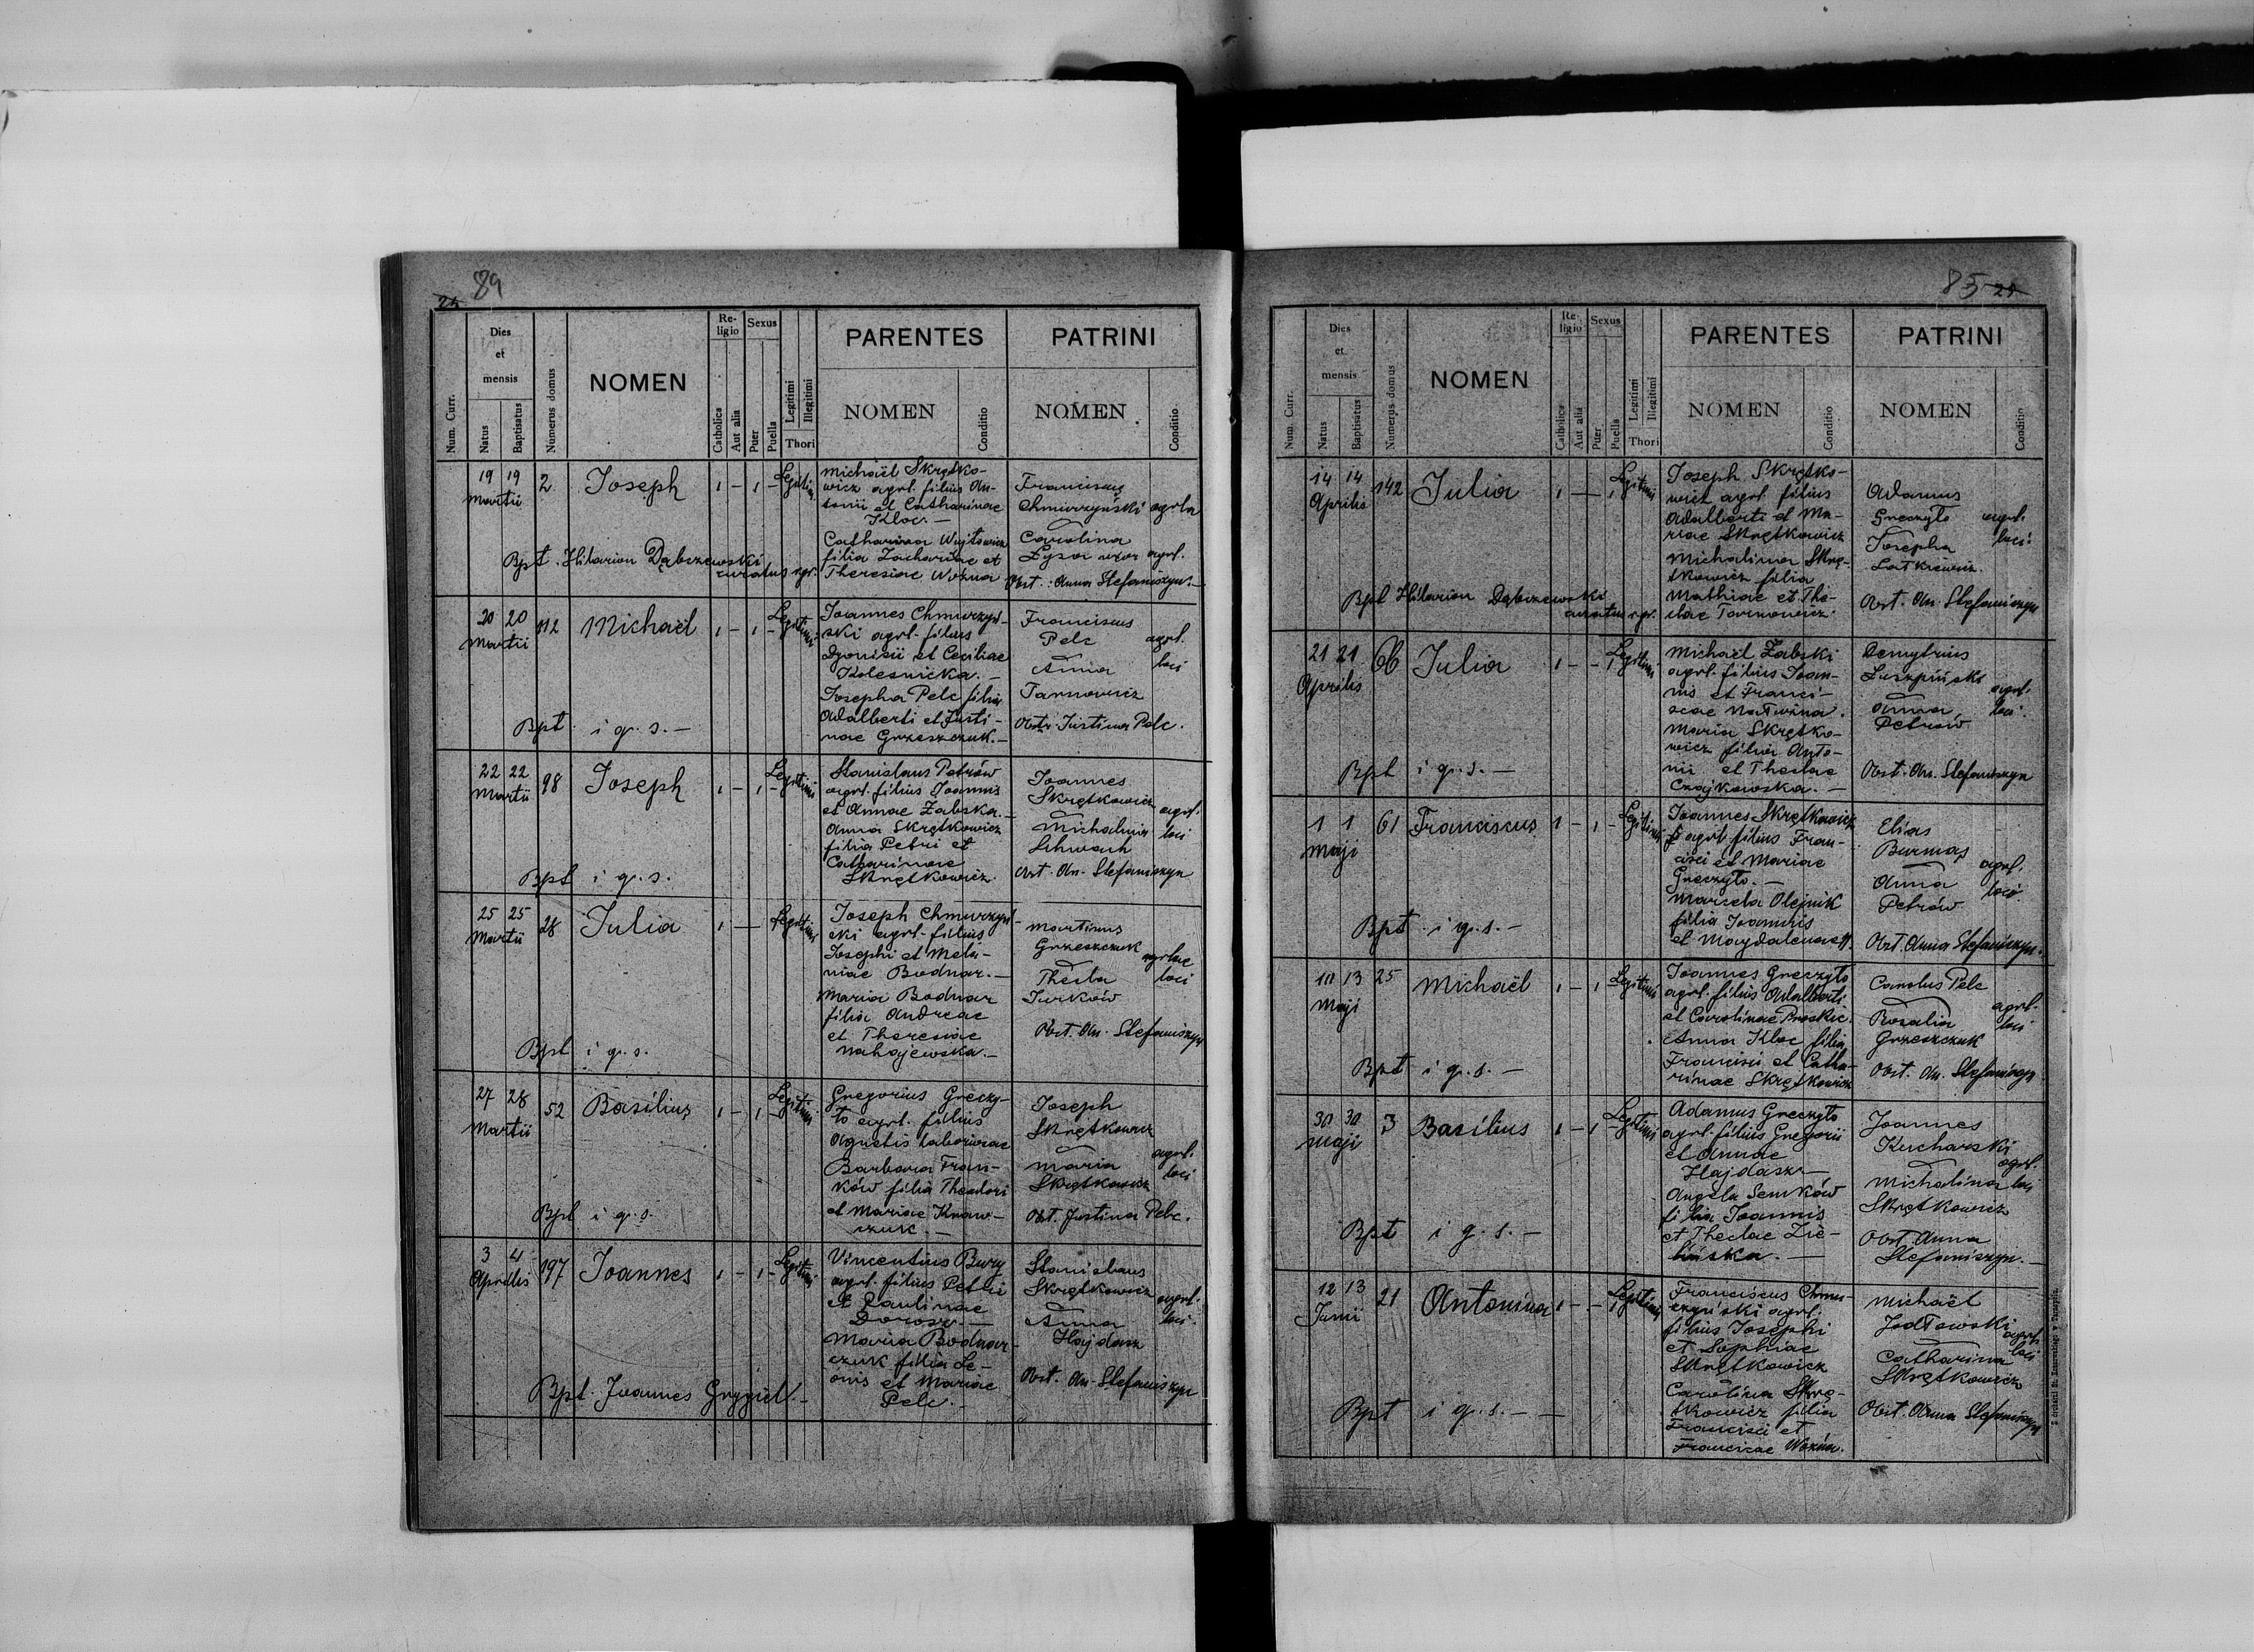 84
25
Num. Curr.
Dies
et
mensis
Natus
Baptisatus
Numerus domus
NOMEN
Re-
ligio
Catholica
Aut alia
Sexus
Puer
Puella
Legitimi
Illegitimi
Thori
PARENTES
NOMEN
Conditio
PATRINI
NOMEN
Conditio
19 19 2 Joseph 1 - 1 - Legitim.
Martii
Michaël Skrętko-
wicz agrl. filius An-
tonii et Catharinae
Kloc. -
Catharina Wujtowicz
filia Zachariae et
Theresiae Woźna
Franciscus
Chmurzyński agrla
Carolina
Łysa uxor agrl.
Obst.: Anna Stefaniszyn. -
Bpt. Hilarion Dąbczewski
curatus r.gr.
20 20 112 Michaël 1 - 1 - Legitimi
Martii
Joannes Chmurzyń-
ski agrl. filius
Dyonisii et Ceciliae
Kolesnicka. -
Josepha Pelc filia
Adalberti et Justi-
nae Grzeszczuk. -
Franciscus
Pelc agrl.
Anna loci
Tarnowicz
Obst: Justina Pelc.
Bpt i q. s. -
22 22 98 Joseph 1 - 1 - Legitimi
Martii
Stanislaus Petrów
agrl. filius Joannis
et Annae Żabska. -
Anna Skrętkowicz
filia Petri et
Catharinae
Skrętkowicz.
Joannes
Skrętkowicz agrl.
Michalina loci
Obst. An. Stefaniszyn
Bpt i q. s.
25 25 28 Julia 1 - - 1 Legitimi
Martii
Joseph Chmurzyń-
ski agrl. filius
Josephi et Mela-
niae Bodnar. -
Maria Bodnar
filia Andreae
et Theresiae
Nahajewska. -
Martinus
Grzeszczuk agrlae
Thecla loci
Jurków
Obst. An. Stefaniszyn
Bpt i q. s.
27 28 52 Basilius 1 - 1 - Legitimi
Martii
Gregorius Greczy-
ło agrl. filius
Agnetis laboricae
Barbara Fran-
ków filia Theodori
et Mariae Kraw-
czuk. -
Joseph
Skrętkowicz
Maria agrl.
Skrętkowicz loci
Obst. Justina Pelc.
Bpt i q. s.
3 4 197 Joannes 1 - 1 - Legitimi
Aprilis
Vincentius Bury
agrl. filius Petri
et Paulinae
Dorosz. -
Maria Bodnar-
czuk filia Le-
onis et Mariae
Pelc. -
Stanislaus
Skrętkowicz agrl.
Anna loci
Hajdasz
Obst. An. Stefaniszyn
Bpt. Joannes Grygiel. -
85 25
Num. Curr.
Dies
et
mensis
Natus
Baptisatus
Numerus domus
NOMEN
Re-
ligio
Catholica
Aut alia
Sexus
Puer
Puella
Legitimi
Illegitimi
Thori
PARENTES
NOMEN
Conditio
PATRINI
NOMEN
Conditio
14 14 142 Julia 1 - - 1 Legitimi
Aprilis
Joseph Skrętko-
wicz agrl. filius
Adalberti et Ma-
riae Skrętkowicz
Michalina Skrę-
tkowicz filia
Mathiae et The-
clae Tarnowicz.
Adamus
Greczyło agrl.
Josepha loci.
Łatkiewicz.
Obst. An. Stefaniszyn
Bpt Hilarion Dąbczewski
curatus r.gr.
21 21 66 Julia 1 - - 1 Legitimi
Aprilis
Michaël Żabski
agrl. filius Joan-
nis et Franci-
scae
Maria Skrętko-
wicz filia Anto-
nii et Theclae
Czajkowska. -
Demytrius
agrl.
Anna loci.
Petrów
Obst. An. Stefaniszyn
Bpt i q. s. -
1 1 61 Franciscus 1 - 1 - Legitimi
Maji
Joannes Skrętkowicz
agrl. filius Fran-
cisci et Mariae
Greczyło. -
Marcela Olejnik
filia Joannis
et Magdalenae
Elias
Burmas agrl.
Anna loci.
Petrów
Obst. Anna Stefaniszyn.
Bpt. i q. s. -
10 13 25 Michaël 1 - 1 Legitimi
Maji
Joannes Greczyło
agrl. filius Adalberti
et Carolinae
Anna Kloc filia
Francisci et Catha-
rinae Skrętkowicz
Carolus Pelc
agrl.
Rozalia loci
Grzeszczuk
Obst. An. Stefaniszyn
Bpt i q. s. -
30 30 3 Basilius 1 - 1 - Legitimi
Maji
Adamus Greczyło
agrl. filius Gregorii
et Annae
Hajdasz -
Angela Semków
filia Joannis
et Theclae Zie-
lińska. -
Joannes
Kucharski
agrl.
Michalina loci
Skrętkowicz
Obst. Anna
Stefaniszyn. -
Bpt i q. s. -
12 13 21 Antonina 1 - - 1 Legitimi
Junii
Franciscus Chmu-
rzyński agrl.
filius Josephi
et Sophiae
Skrętkowicz
Carolina Skrę-
tkowicz filia
Francisci et
Franciscae Woźna.
Michaël
Jodłowski
agrl.
Catharina loci
Skrętkowicz
Obst. Anna Stefaniszyn
Bpt i q. s. - -